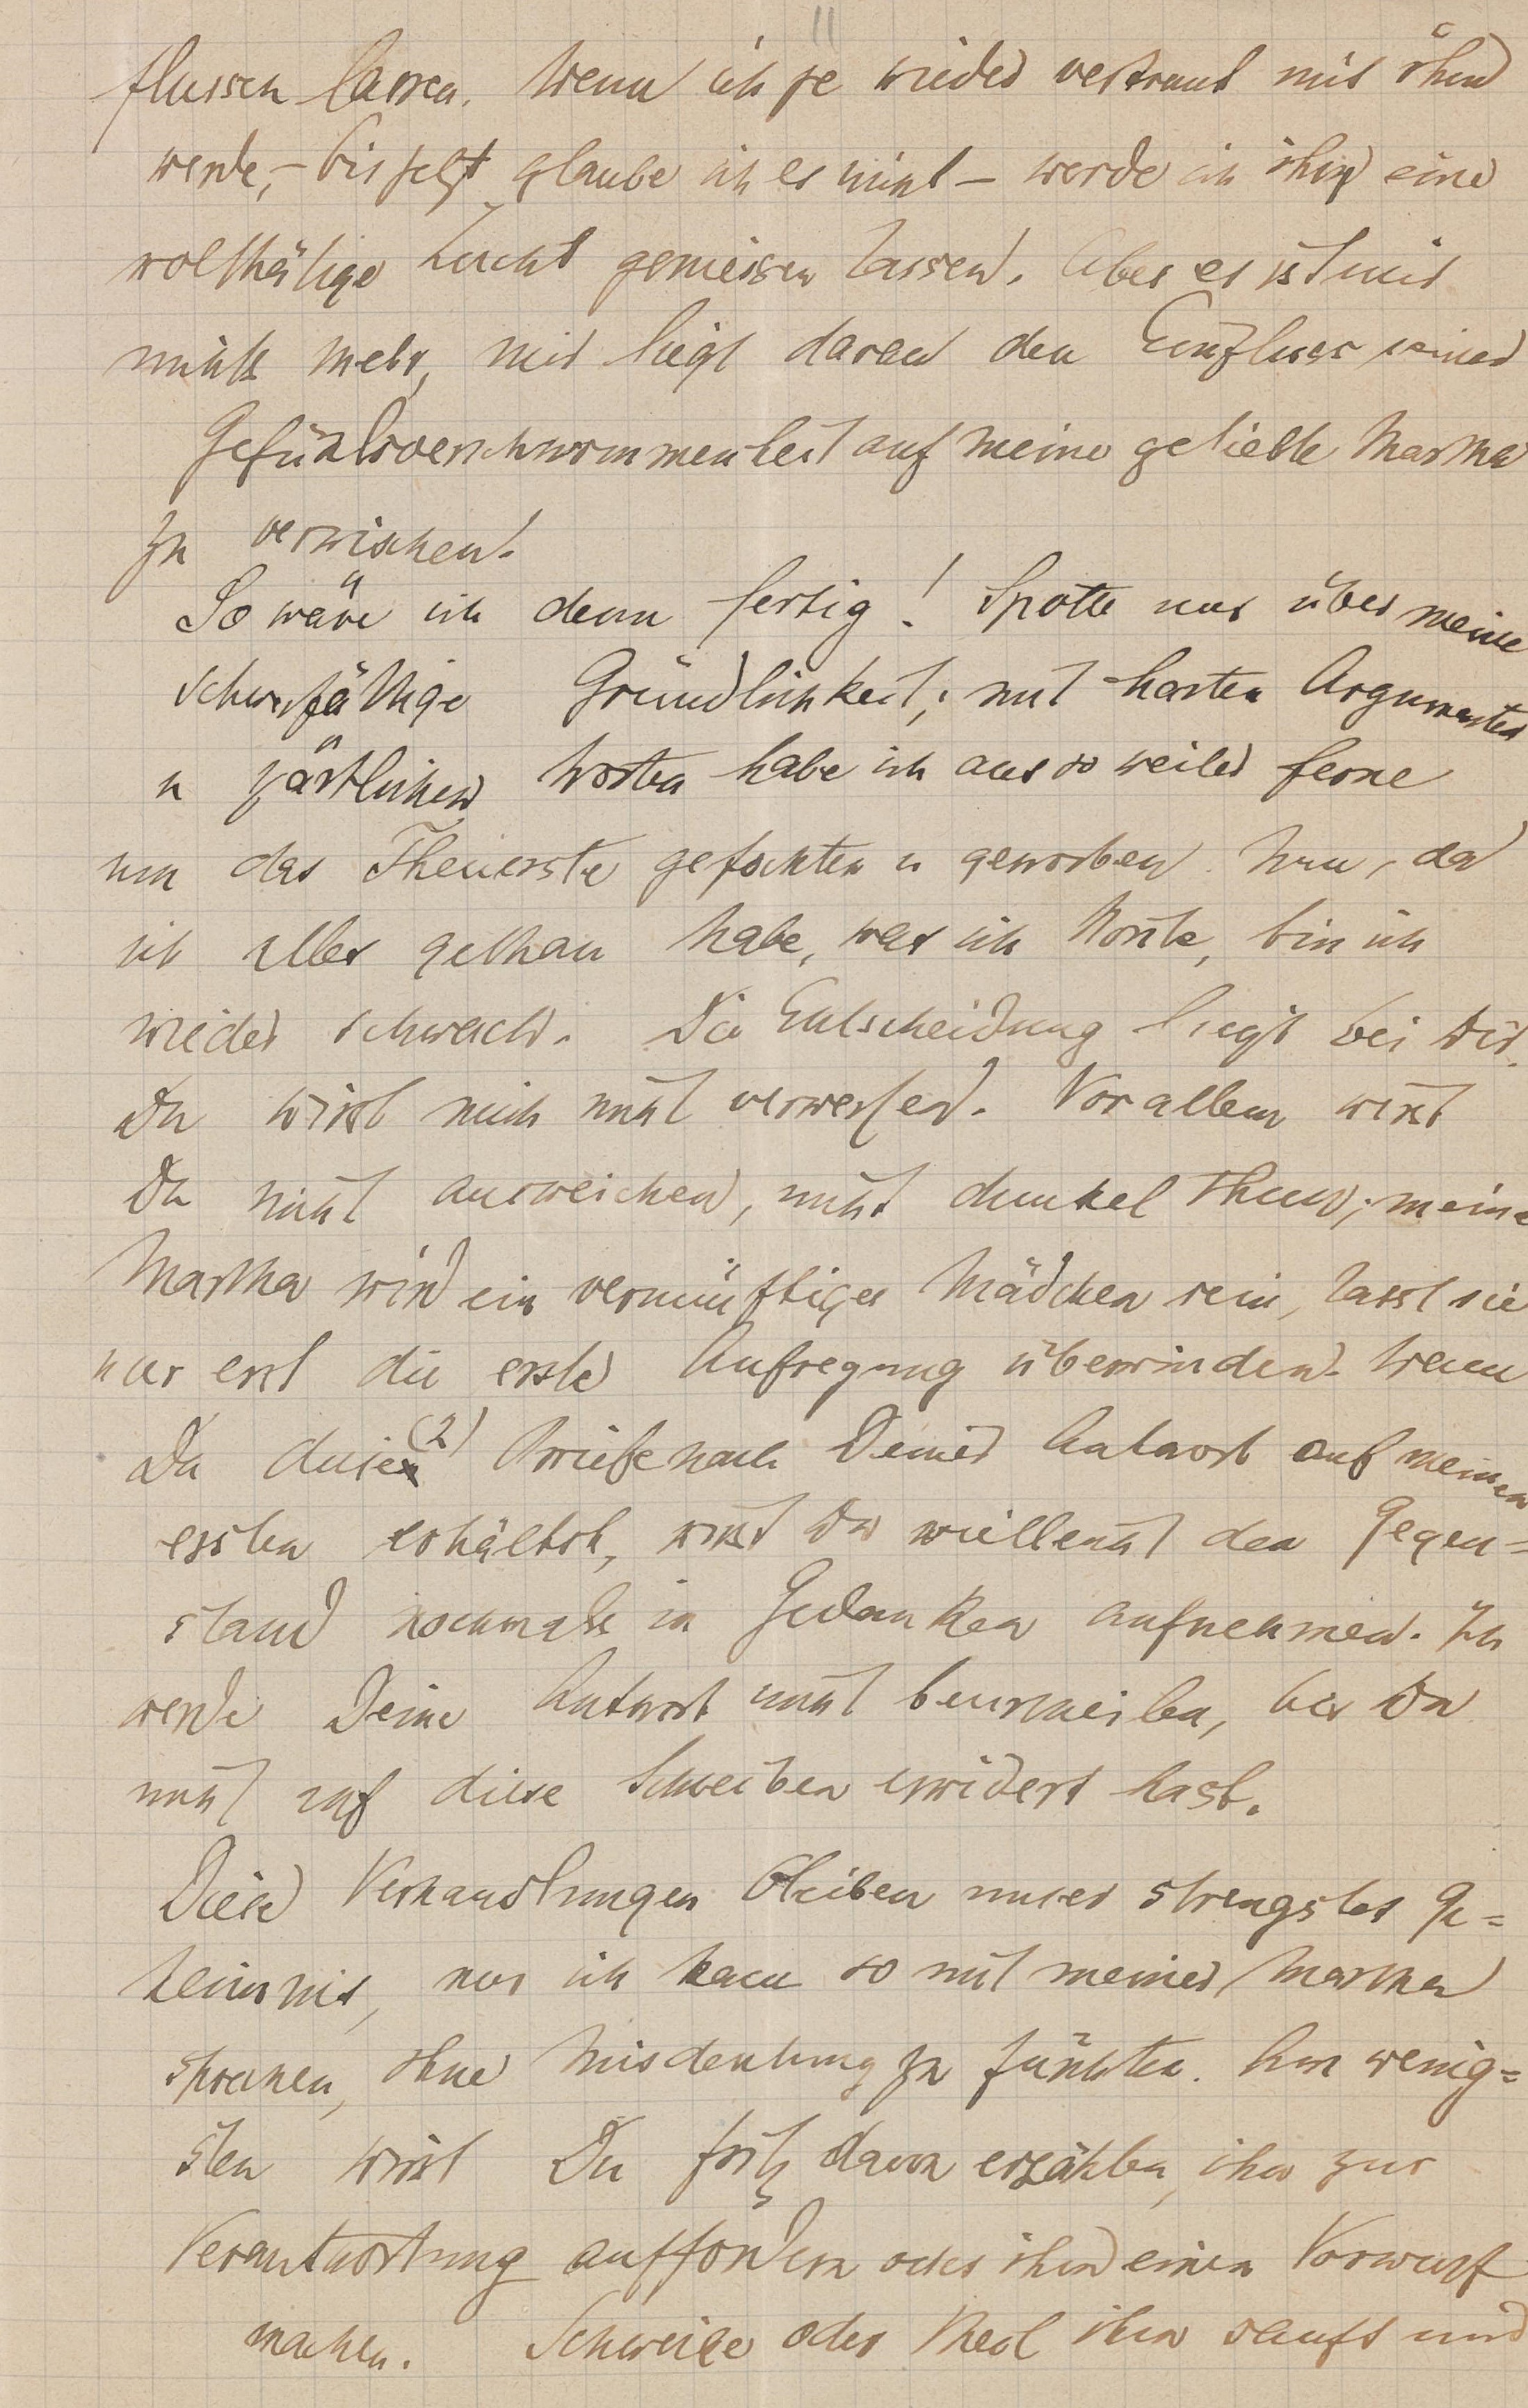 11
flussen lassen. Wenn ich je wieder vertraut mit ihm
werde, – bis jetzt glaube ich es nicht – werde ich ihm eine
wolthätige Zucht geniessen lassen. Aber es ist mir
nichts mehr, mir liegt daran den Einfluss seiner
Gefühlsverschwommenheit auf meine geliebte Martha
zu verwischen.
So wäre ich denn fertig! Spotte nur über meine
schwerfällige Gründlichkeit; mit harten Argumenten
u zärtlichen Worten habe ich aus so weiter Ferne
um das Theuerste gefochten u geworben. Nun, da
ich alles gethan habe, was ich konte, bin ich
wieder schwach. Die Entscheidung liegt bei Dir.
Du wirst mich nicht verwerfen. Vor allem wirst
Du nicht ausweichen, nicht dunkel thun; meine
Martha wird ein vernünftiges Mädchen sein, lasst sie
nur erst die erste Aufregung überwinden. Wenn
Du diese (2) Briefe nach Deiner Antwort auf meinen
ersten erhältst, wirst Du vielleicht den Gegen=
stand nochmals in Gedanken aufnehmen. Ich
werde Deine Antwort nicht beurtheilen, bis Du
nicht auf diese Schreiben erwidert hast.
Diese Verhandlungen bleiben unser strengstes Ge=
heimnis, nur ich kann so mit meiner Martha
sprechen, ohne Misdeutung zu fürchten. Am wenig=
sten wirst Du Fritz davon erzählen, ihn zur
Verantwortung auffordern oder ihm einen Vorwurf
machen. Schweige oder sanft und